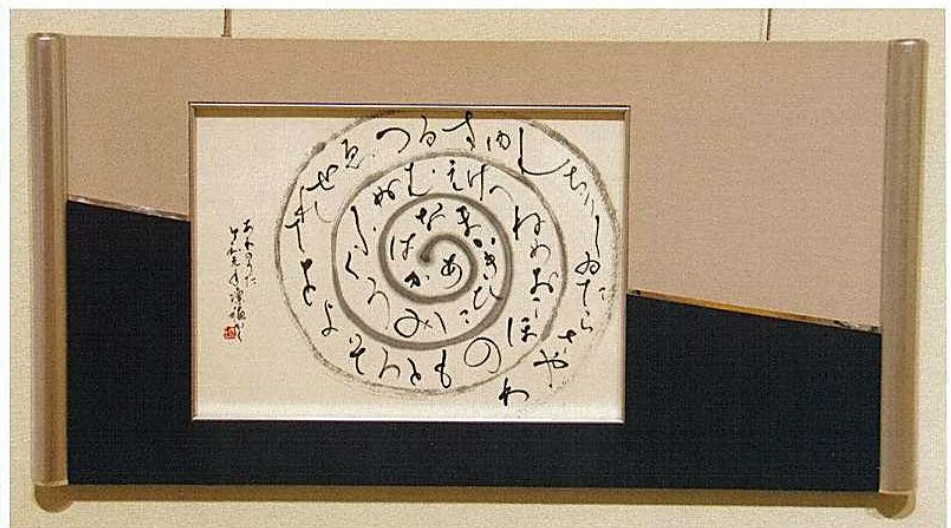 あかはなまいきひにみうくふぬむえけへねめおこほのもとろそよをてれせゑつるすゆんちりしゐたらさやわ
あわのうた
令和元年